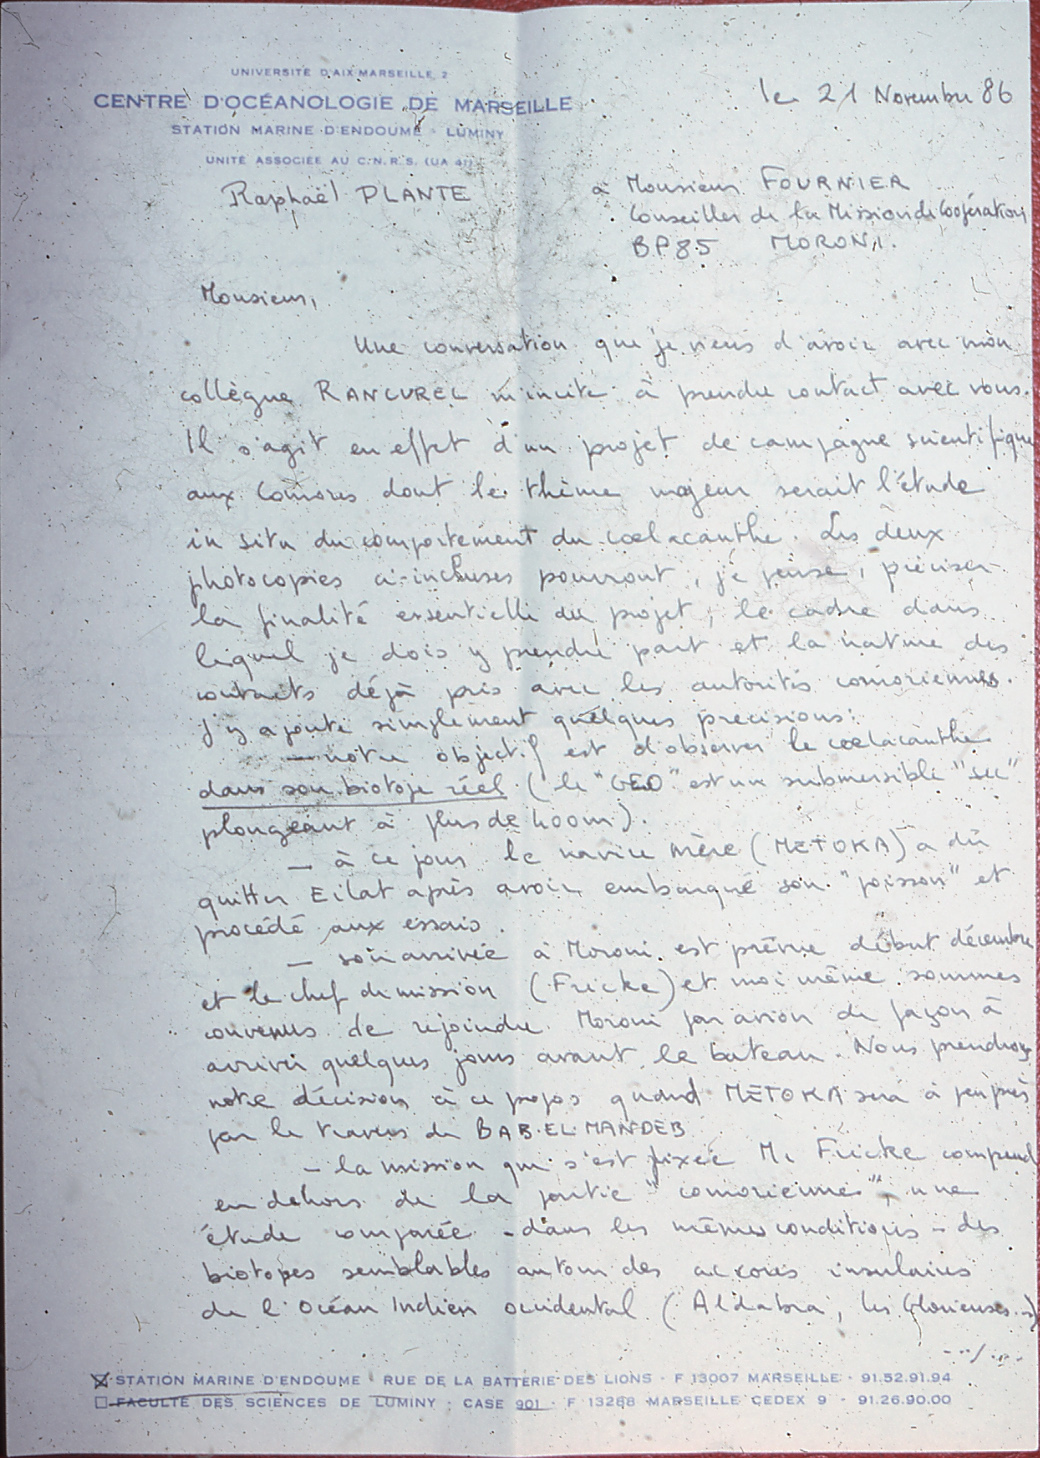 UNIVERSITÉ D'AIX MARSEILLE 2
CENTRE D'OCÉANOLOGIE DE MARSEILLE
STATION MARINE D'ENDOUME - LUMINY
UNITÉ ASSOCIÉE AU C.N.R.S. (UA 41)
le 21 Novembre 86
Raphaël PLANTE
à Monsieur FOURNIER
Conseiller de la Mission de Coopération
BP 85 MORONI.
Monsieur,
Une conversation que je viens d'avoir avec mon
collègue RANCUREL m'incite à prendre contact avec vous.
Il s'agit en effet d'un projet de campagne scientifique
aux Comores dont le thème majeur serait l'étude
in situ du comportement du cœlacanthe. Les deux
photocopies ci-incluses pourront, je pense, préciser
la finalité essentielle du projet, le cadre dans
lequel je dois y prendre part et la nature des
contacts déjà pris avec les autorités comoriennes.
J'y ajoute simplement quelques précisions:
- notre objectif est d'observer le cœlacanthe
dans son biotope réel (le "GEO" est un submersible "sec"
plongeant à plus de 200m).
- à ce jour le navire mère (METOKA) a dû
quitter Eilat après avoir embarqué son "poisson" et
procédé aux essais.
- son arrivée à Moroni est prévue début décembre
et le chef de mission (Fricke) et moi même sommes
convenus de rejoindre Moroni par avion de façon à
arriver quelques jours avant le bateau. Nous prendrons
notre décision à ce propos quand METOKA sera à peu près
par le travers de BAB.EL.MANDEB
- la mission que s'est fixée M. Fricke comprend
en dehors de la partie "comorienne", une
étude comparée - dans les mêmes conditions - des
biotopes semblables autour des accores insulaires
de l'Océan Indien occidental (Aldabra, les Glorieuses..)
../...
STATION MARINE D'ENDOUME - RUE DE LA BATTERIE DES LIONS - F 13007 MARSEILLE - 91.52.91.94
FACULTÉ DES SCIENCES DE LUMINY - CASE 901 - F 13288 MARSEILLE CEDEX 9 - 91.26.90.00